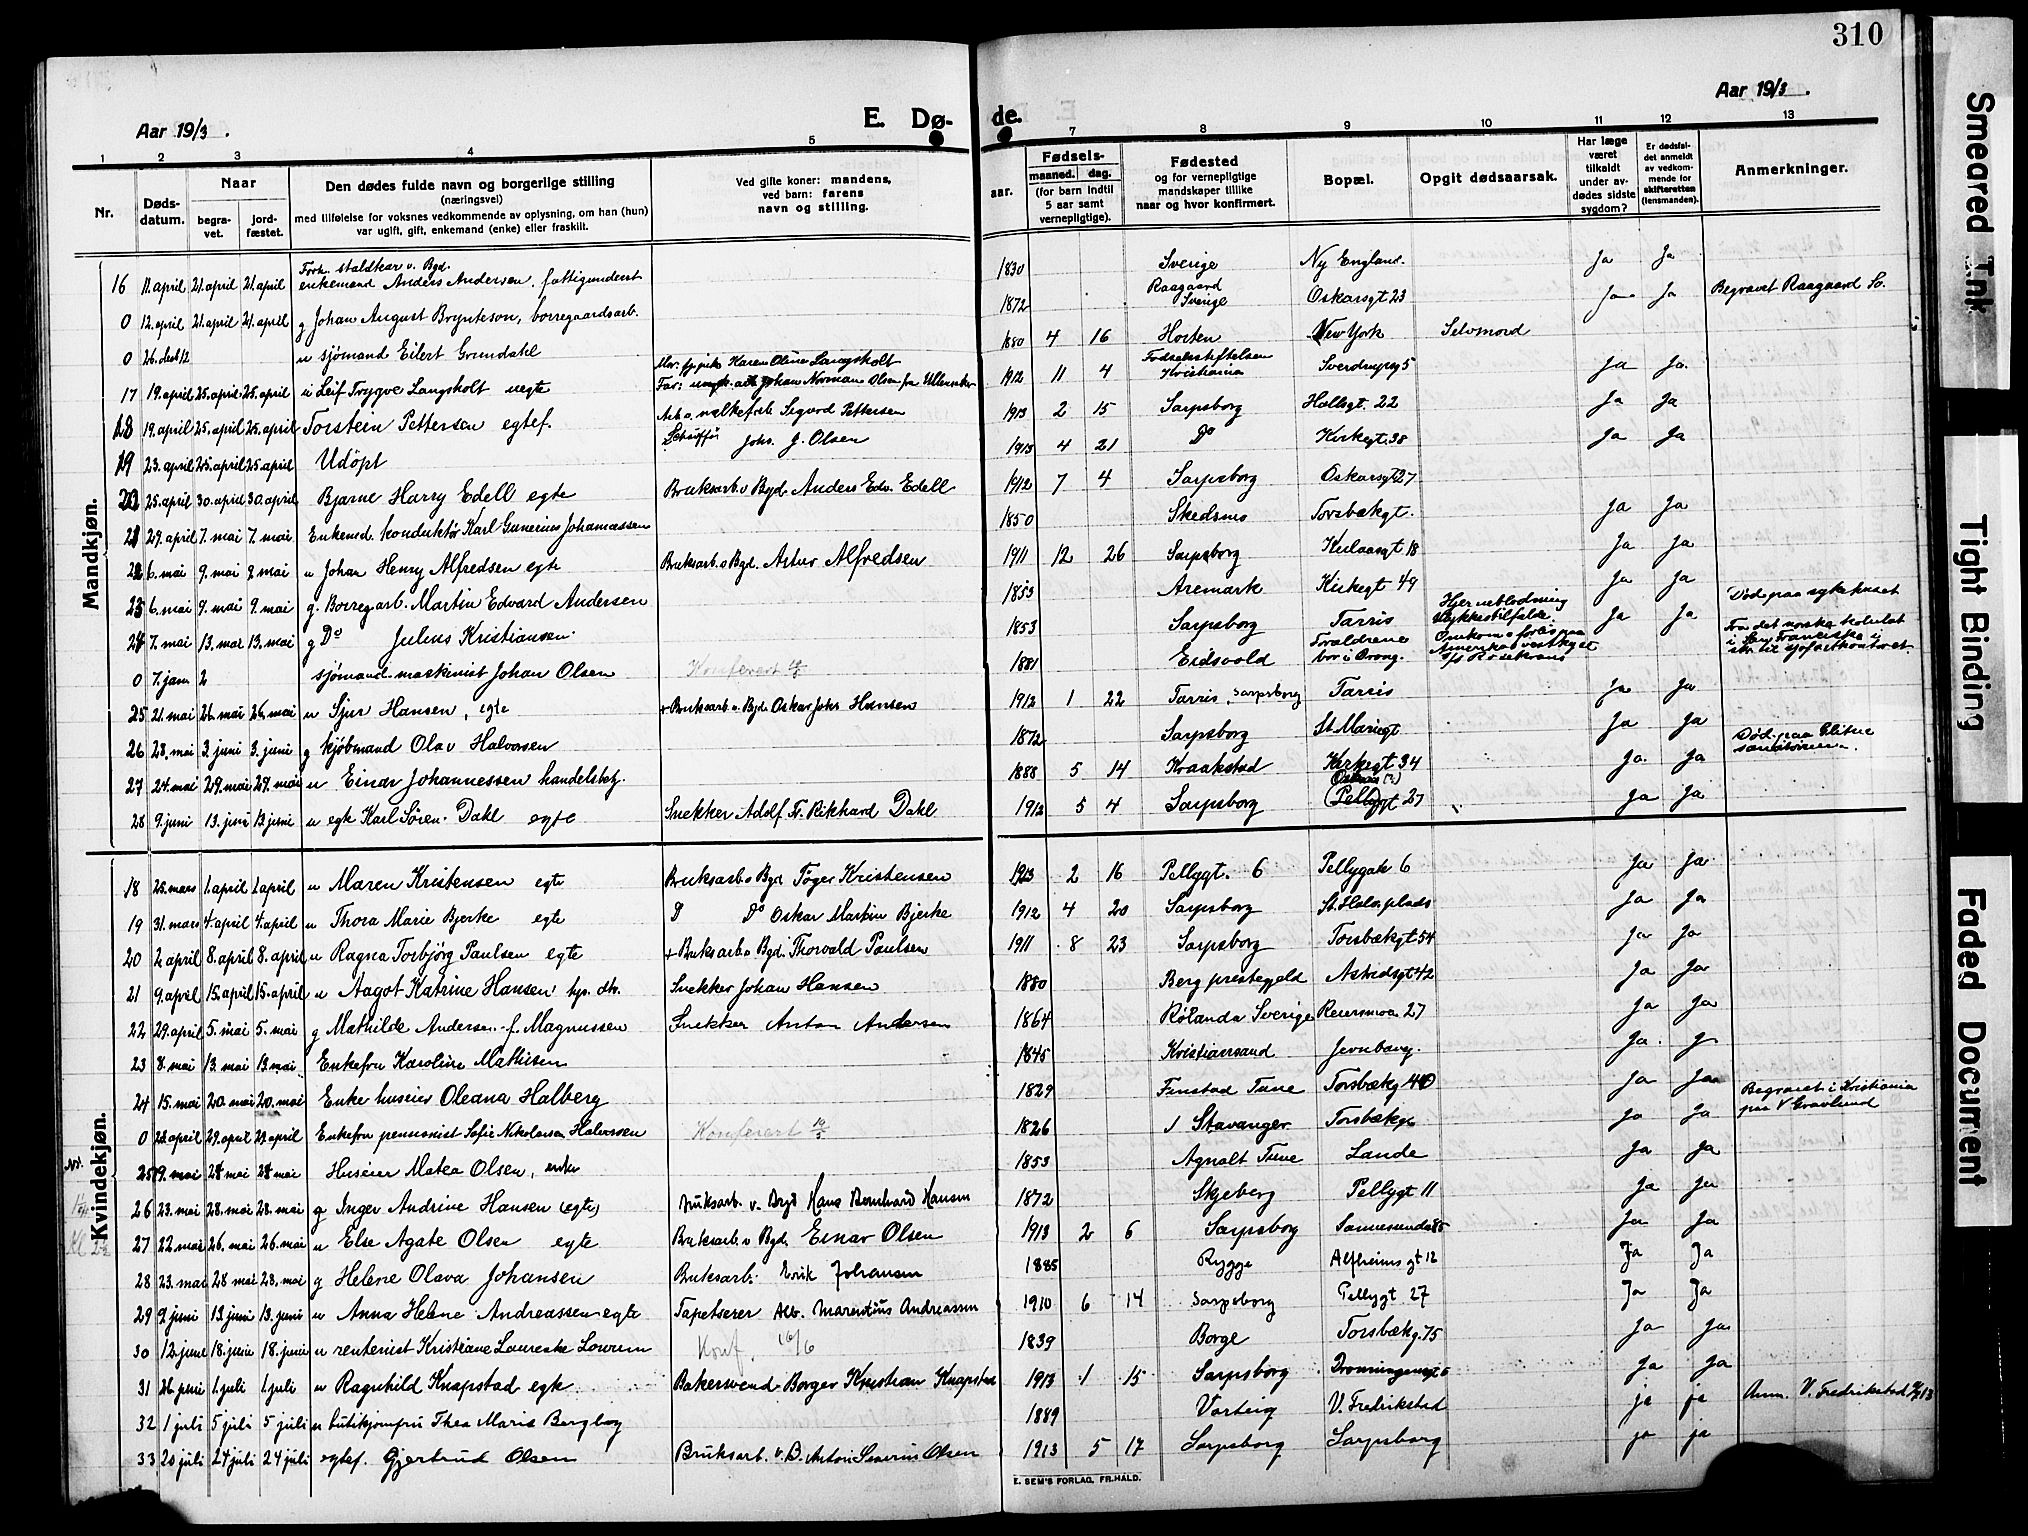 310
Aar 1913.
E. Dø-
de.
Aar 1913.
1 2 3 4 5 7 8 9 10 11 12 13
Nr.
Døds-
datum.
Naar
begra-
vet.
jord-
fæstet.
Den dødes fulde navn og borgerlige stilling
(næringsvei)
med tilføielse for voksnes vedkommende av oplysning, om han (hun)
var ugift, gift, enkemand (enke) eller fraskilt.
Ved gifte koner: mandens,
ved barn: farens
navn og stilling.
aar.
Fødsels-
maaned. dag.
(for barn indtil
5 aar samt
vernepligtige).
Fødested
og for vernepligtige
mandskaper tillike
naar og hvor konfirmert.
Bopæl.
Opgit dødsaarsak.
Har læge
været
tilkaldt
under av-
dødes sidste
sygdom?
Er dødsfal-
det anmeldt
av vedkom-
mende for
skifteretten
(lensmanden).
Anmerkninger.
Mandkjøn.
16 11. april 21. april 21. april Forh. staldkar v. Bgd. enkemand Anders Andersen, fattigunderst 1830 Sverige Ny England. Ja Ja
0 12. april 21. april 21. april g Johan August Brynteson, borregaardsarb. 1872 Raagaard Sverige Oskarsgt 23 Ja Ja Begravet Raagaard Sv.
0 26. dec 12 u sjømand Eilert Grundahl 1880 4 16 Horten New York Selvmord
17 19. april 25. april 25. april u Leif Trygve Langsholt uegte Mor: pike Karen Oline Langsholt Far: ungk. arb Johan Norman Olsen fra Ullensaker 1912 11 4 Fødselsstiftelsen Kristiania Sverdrupsg 5 Ja Ja
18 19. april 25. april 25. april Torstein Pettersen egtef. Sigvord Pettersen 1913 2 15 Sarpsborg Hallsgt. 22 Ja Ja
19 23. april 25. april 25 april Udøpt Johs. J. Olsen 1913 4 21 Do Kirkegt. 38 Ja Ja
20 25. april 30. april 30. april Bjarne Harry Edell egte Bruksarb. v Bgd. Anders Edv. Edell 1912 7 4 Sarpsborg Oskarsgt 27
21 29. april 7. mai 7. mai Enkemd. konduktør Karl Gunerius Johannessen 1850 Skedsmo Torsbækgt. Ja Ja
22 6. mai 9. mai 9 mai u Johan Henry Alfredsen egte Bruksarb. v Bgd. Artur Alfredsen 1911 12 26 Sarpsborg Kulaasgt 18 Ja Ja
23 6. mai 9. mai 9. mai g. Borregarb. Martin Edvard Andersen 1853 Aremark Kirkegt 49 Ja Ja
24 7. mai 13. mai 13. mai g Do Julius Kristiansen 1853 Sarpsborg Tarris Hjerneblødning Ja Ja Død paa sykehuset
0 7. jan 2 sjømand maskinist Johan Olsen Konferert 1881 Eidsvold Forældrene bor i Ulykkestilfælde. Omkom forlis paa Amerikas vestkyst Fra det norske konsulat i San Franciska
25 21. mai 26. mai 26. mai u Sjur Hansen, egte + Bruksarb. v. Bgd. Oskar Johs Hansen 1912 1 22 Tarris, Sarpsborg Tarris Ja Ja
26 23. mai 3. juni 3. juni g kjøbmand Olav Halvorsen 1872 Sarpsborg St. Mariegt Ja Ja Død paa Glitne sanatorium.
27 24. mai 29. mai 29. mai u Einar Johannessen handelsbetj. 1888 5 14 Kraakstad Kirkegt 34 Ja. Ja
28 9. juni 13. juni 13 juni u egte Karl Søren Dahl egte Snekker Adolf Fr. Rikhard Dahl 1912 5 4 Sarpsborg (Pellygt 27 Ja Ja
Kvindekjøn.
18 25. mars 1. april 1. april u Maren Kristensen egte Bruksarb v Bgd Tøger Kristensen 1913 2 16 Pellygt. 6 Pellygate 6 Ja Ja
19 31. mars 4. april 4. april u Thora Marie Bjerke egte D Do Oskar Martin Bjerke 1912 4 20 Sarpsborg St. Halvplads Ja Ja
20 2. april 8. april 8. april u Ragna Torbjørg Paulsen egte + Bruksarb v Bgd. Thorvald Paulsen 1911 8 23 Sarpsborg Torsbækgt 54 Ja Ja
21 9. april 15. april 15. april u Aagot Katrine Hansen Snekker Johan Hansen 1880 Berg prestegjeld Astridsgt 42 Ja Ja
22 29. april 5. mai 5. mai g Mathilde Andersen f. Magnussen Snekker Anton Andersen 1864 Rølanda Sverige Reiersmoa 27 Ja Ja
23 8. mai 13. mai 13. mai Enkefru Karoline Mathisen 1845 Kristiansand Jernbaneg. Ja Ja
24 15. mai 20. mai 20. mai Enke huseier Oleana Halberg 1829 Finstad Tune Torsbækg 40 Ja Ja
0 22 april 29. april 29 april Enkefru pensionist Sofie Nikolarsen Halvorsen Konferert 1826 Stavanger Torsbækgt Ja Ja Begravet i Kristiania paa V Gravlund
25 19. mai 24 mai 24 mai Huseier Matea Olsen, enke 1853 Agnalt Tune Lande Ja Ja
26 23. mai 28. mai 28. mai g Inger Andrine Hansen (egte) Bruksarb. v. Bgd Hans Bernhard Hansen 1872 Skjeberg Pellygt 11 Ja Ja
27 22 mai 26. mai 26. mai u Else Agate Olsen egte Bruksarb. v Bgd. Einar Olsen 1913 2 6 Sarpsborg Sannesunds 85 Ja Ja
28 23. mai 28 mai 28. mai g Helene Olava Johansen Bruksarb. Erik Johansen 1885 Rygge Alfheimsgt 12 Ja Ja
29 9 juni 13. juni 13. juni u Anna Helene Andreassen egte Tapetserer Alb. Marentius Andreassen 1910 6 14 Sarpsborg Pellygt 27 Ja Ja
30 12. juni 18. juni 18. juni u rentenist Kristiane Laureske Lourum Konf. 16/6 1839 Borge Torsbækg. 75 Ja Ja
31 26 juni 1. juli 1. juli u Ragnhild Knapstad egte Bakersvend Borger Kristian Knapstad 1913 1 15 Sarpsborg Dronningensgt 6 Ja Ja
32 1 juli 5 juli 5 juli u butikjomfru Thea Marie Bergby 1889 Varteig V. Fredrikstad ja ja Anm. V. Fredrikstad
33 20 juli 24 juli 24 juli egtef. Gjertrud Olsen Bruksarb. v. B. Anton Severin Olsen 1913 5 17 Sarpsborg Sarpsborg ja ja
E. SEM'S FORLAG, FR.HALD.
Smeared Ink
Tight Binding
Faded Document